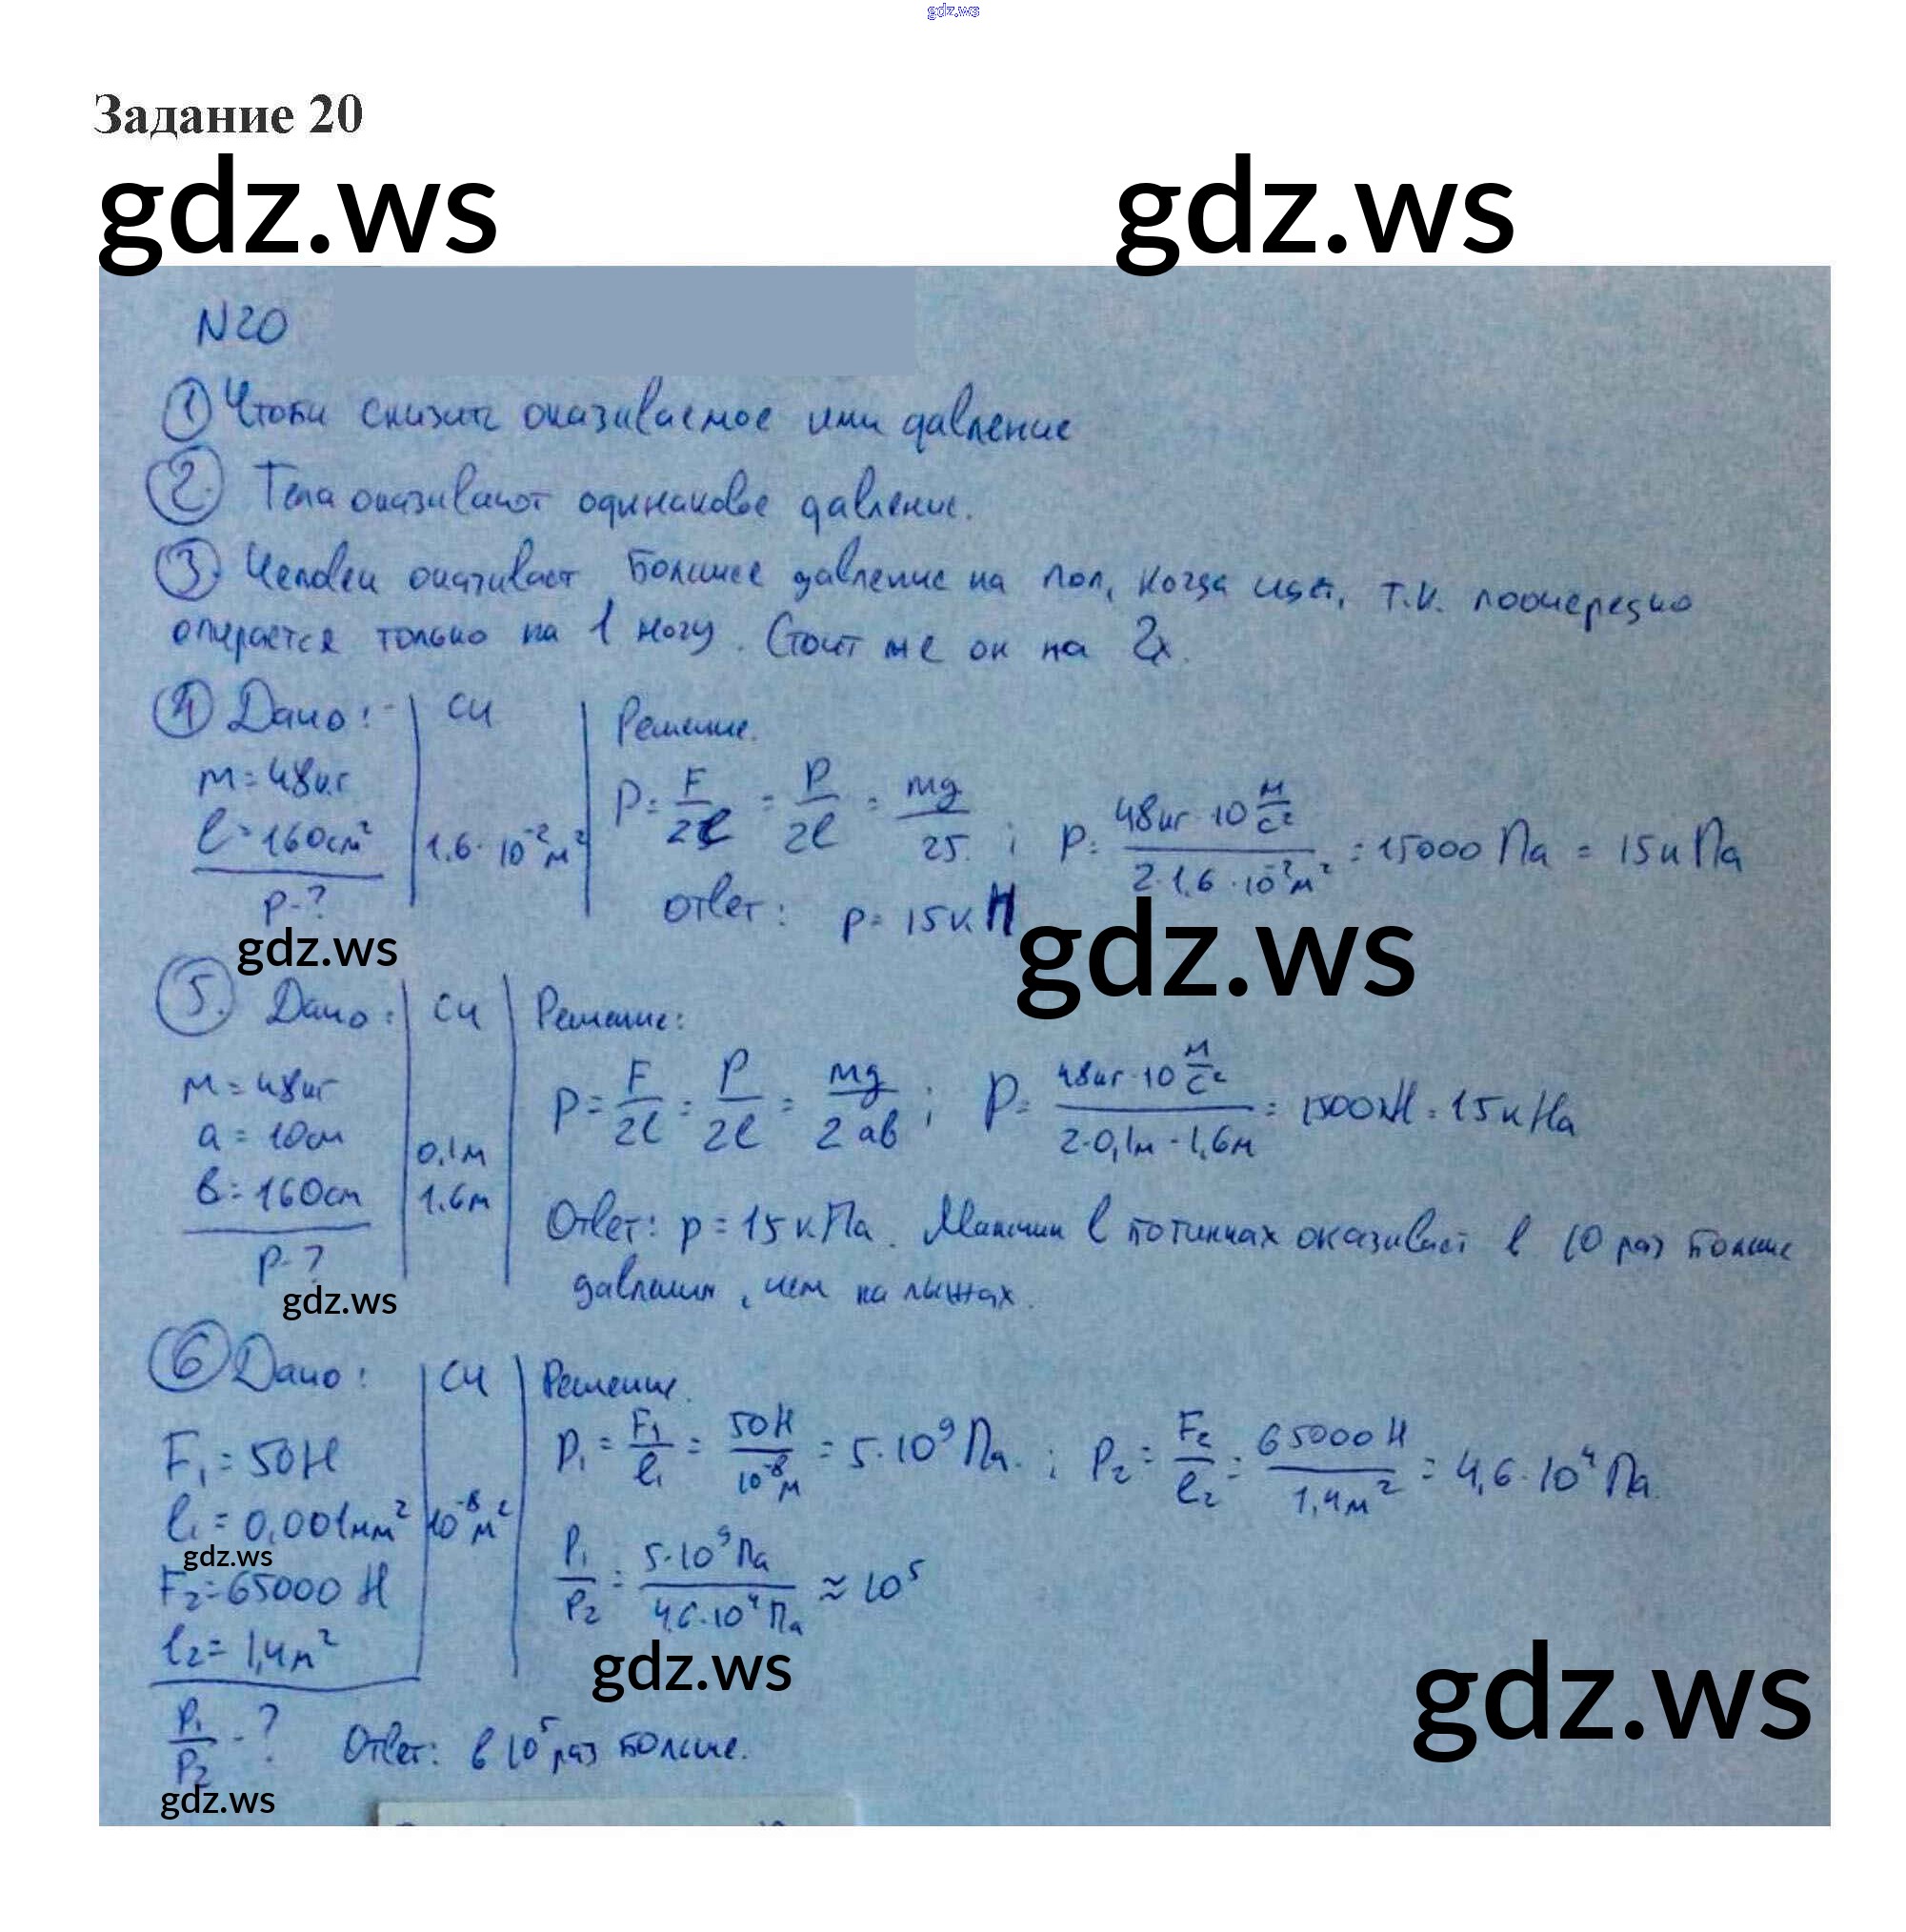 gdz.ws
Задание 20
gdz.ws gdz.ws
N20
① Чтобы снизить оказываемое ими давление
②. Тела оказывают одинаковое давление.
③. Человек оказывает большее давление на пол, когда идёт, т.к. поочередно
опирается только на 1 ногу. Стоит же он на 2х.
④ Дано: СИ Решение.
m = 48кг
l = 160см² 1,6·10⁻²м² P = F/2l = P/2l = mg/2S ; P = 48кг·10 м/с² / 2·1,6·10⁻²м² = 15000 Па = 15кПа
p-? Ответ: p = 15кП
gdz.ws gdz.ws
⑤. Дано: СИ Решение:
m = 48кг
a = 10см 0,1м P = F/2l = P/2l = mg/2ab ; P = 48кг·10 м/с² / 2·0,1м·1,6м = 1500Н = 1,5кПа
в = 160см 1,6м
p-? Ответ: p = 15кПа. Мальчик в ботинках оказывает в 10 раз больше
давления, чем на лыжах.
gdz.ws
⑥ Дано: СИ Решение.
F₁ = 50Н P₁ = F₁/l₁ = 50Н/10⁻⁸м = 5·10⁹ Па. ; P₂ = F₂/l₂ = 65000Н/1,4м² = 4,6·10⁴ Па.
l₁ = 0,001мм² 10⁻⁸м²
gdz.ws
F₂ = 65000 Н P₁/P₂ = 5·10⁹Па/4,6·10⁴Па ≈ 10⁵
l₂ = 1,4м²
gdz.ws gdz.ws
P₁/P₂ - ? Ответ: в 10⁵ раз больше.
gdz.ws